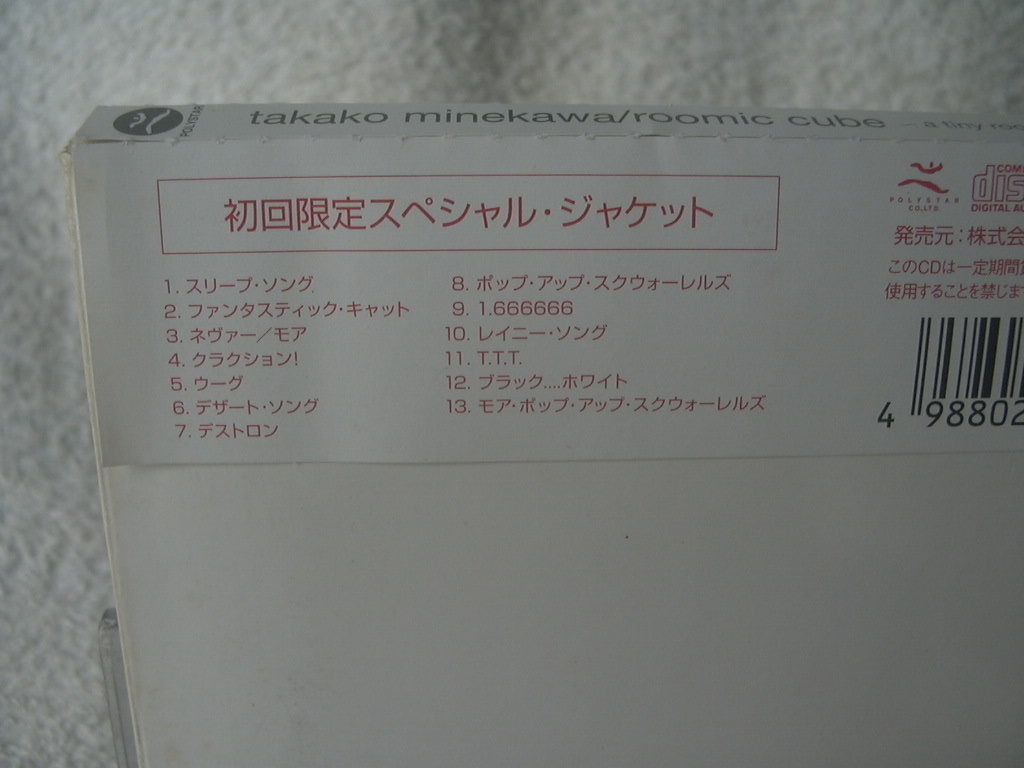 POLYSTAR
takako minekawa/roomic cube — a tiny roo
初回限定スペシャル・ジャケット
1. スリープ・ソング
2. ファンタスティック・キャット
3. ネヴァー／モア
4. クラクション!
5. ウーグ
6. デザート・ソング
7. デストロン
8. ポップ・アップ・スクウォーレルズ
9. 1.666666
10. レイニー・ソング
11. T.T.T.
12. ブラック....ホワイト
13. モア・ポップ・アップ・スクウォーレルズ
POLYSTAR
CO.,LTD.
COM
dis
DIGITAL AU
発売元：株式会
このCDは一定期間
使用することを禁じま
4 98802